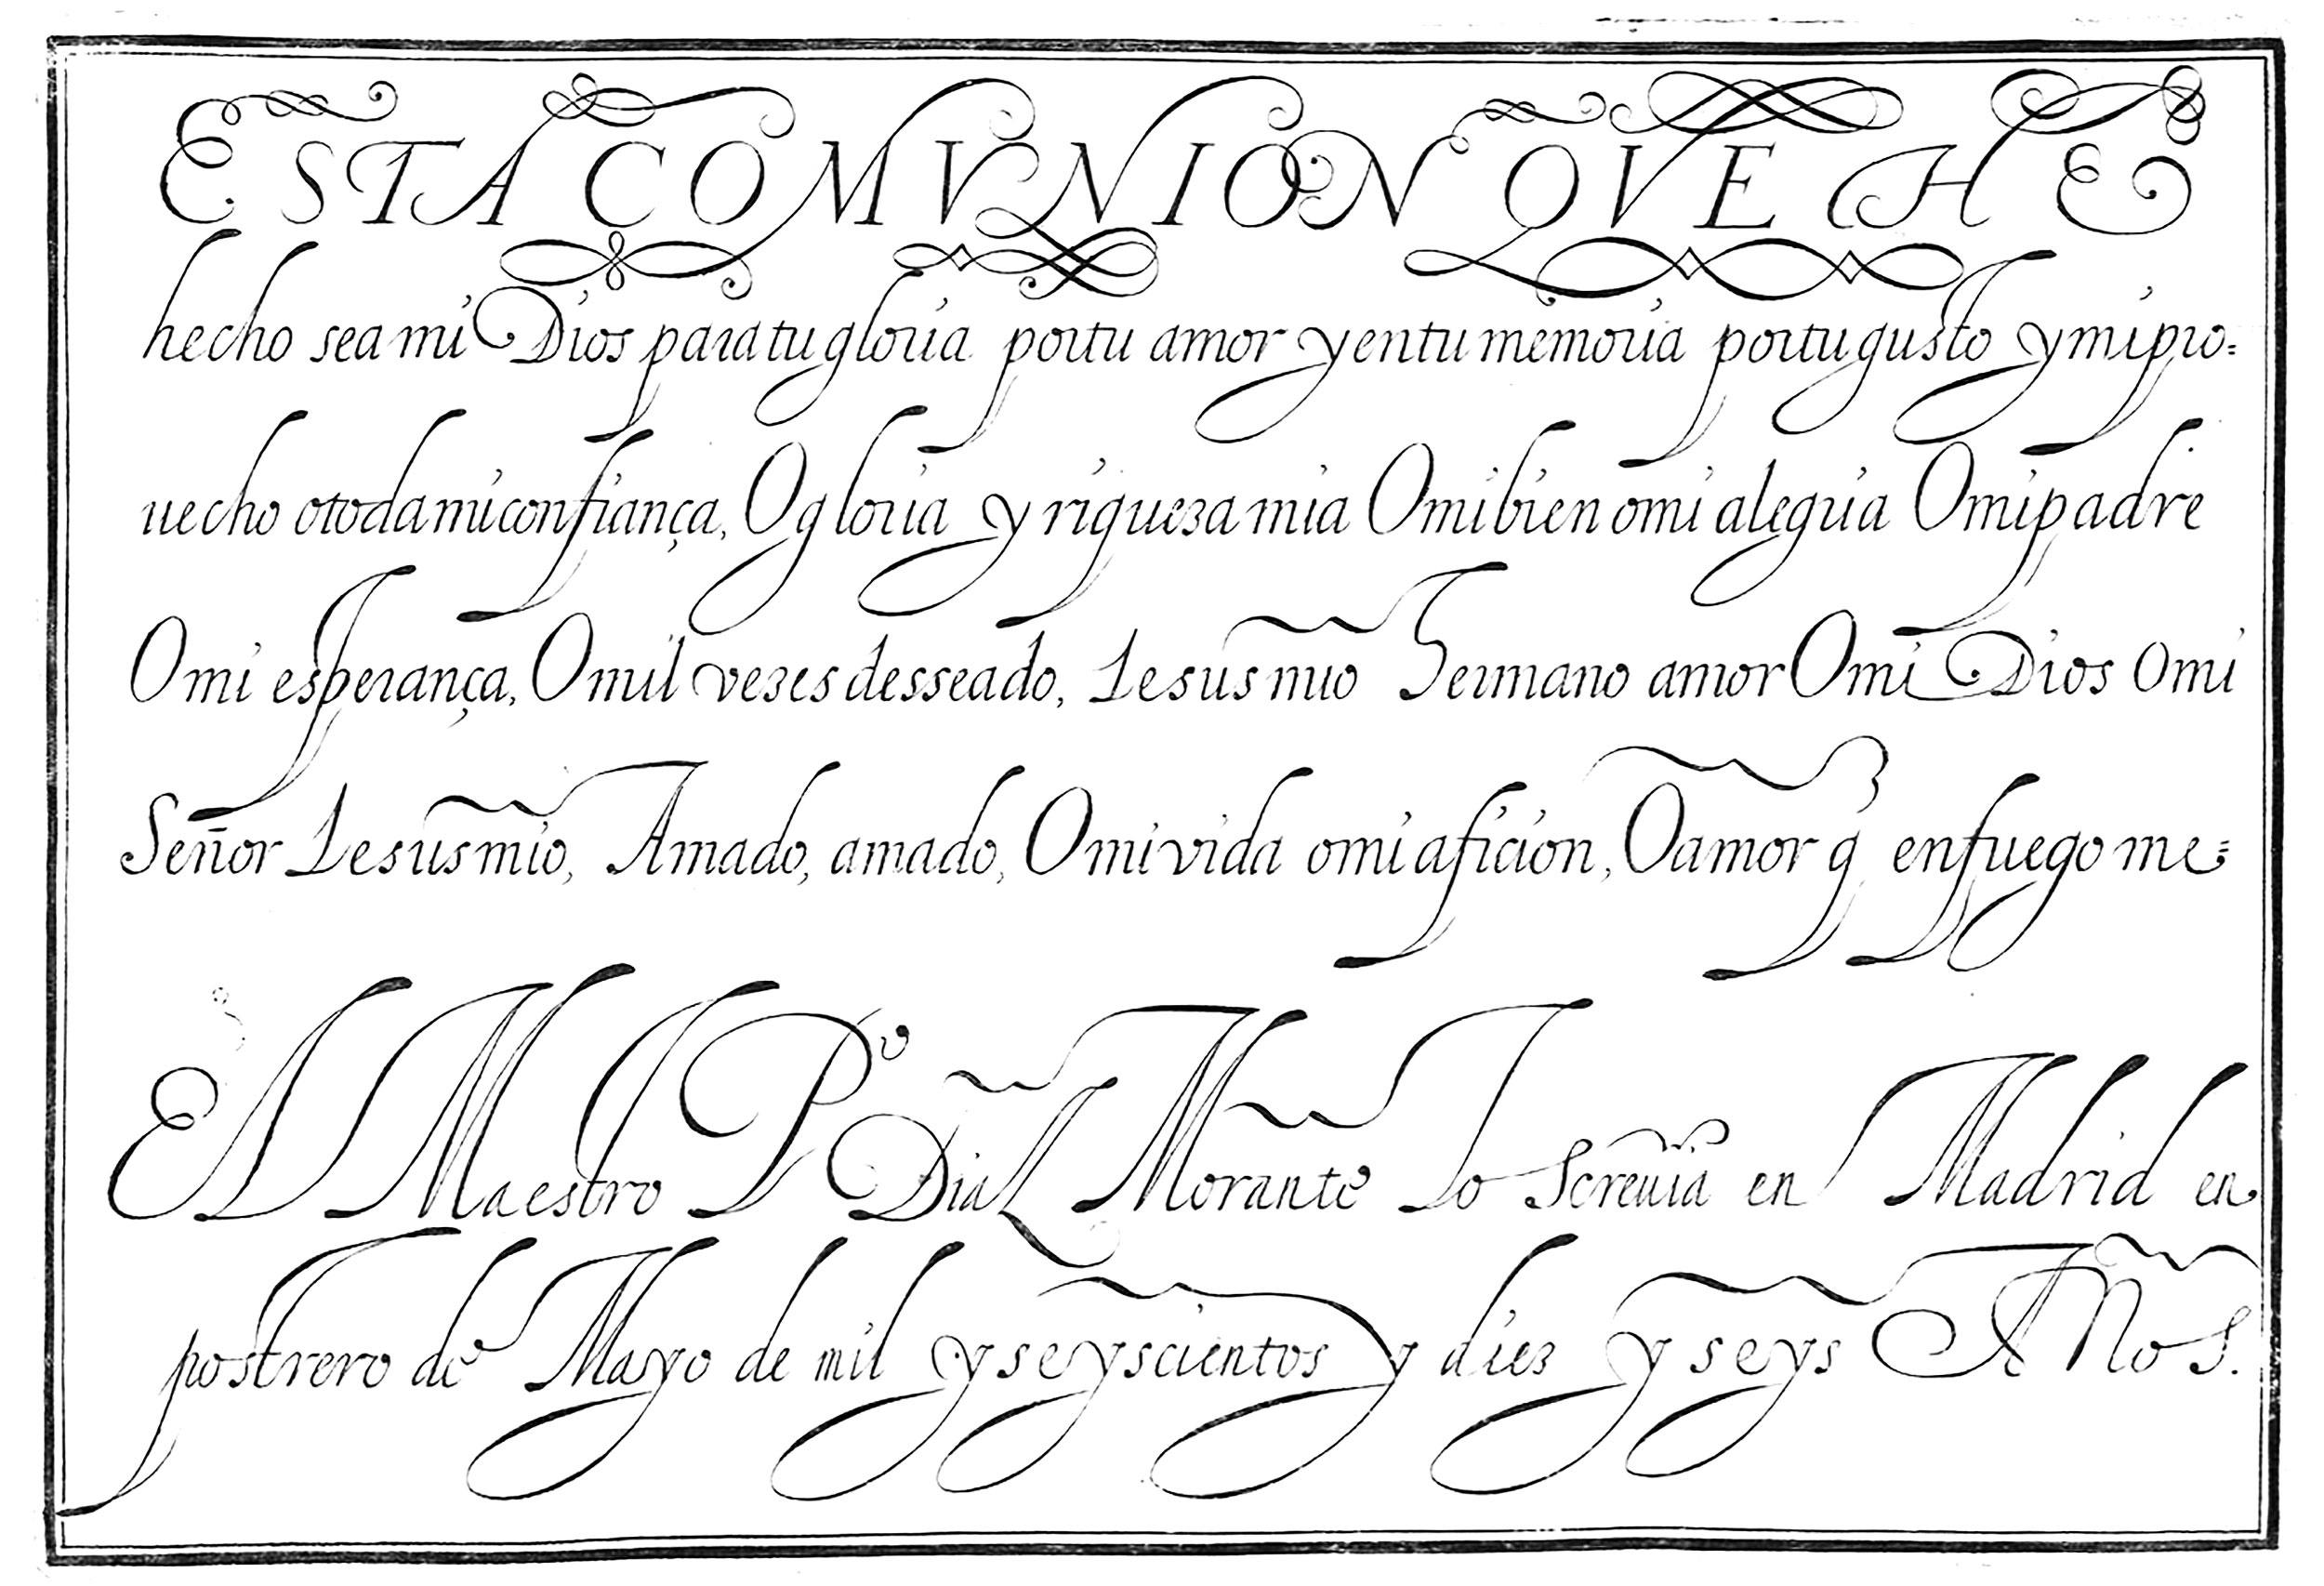 ESTA COMVNION QVE HE
hecho sea mi Dios para tu gloria por tu amor y en tu memoria por tu gusto y mi pro=
uecho o toda mi confiança, O gloria y riqueza mia O mi bien o mi alegria O mi padre
O mi esperança, O mil vezes desseado, Iesus mio Hermano amor O mi Dios O mi
Señor Iesus mio, Amado, amado, O mi vida o mi aficion, O amor q̃ en fuego me=
El Maestro Pº Diaz Morante Lo Screuia en Madrid en
postrero de Mayo de mil y seyscientos y diez y seys Años.